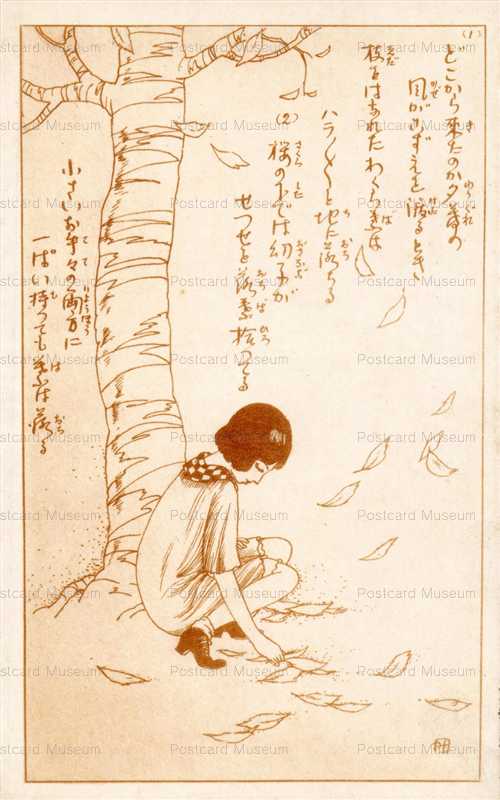 (1)
どこから来たのか夕暮の
風がこずえを渡るとき
枝をはなれたわくら葉は
ハラハラと地に落ちる
(2)
桜の下では幼子が
せつせと落葉拾つてる
小さいお手々の両方に
一ぱい持つても葉は落る
Postcard Museum